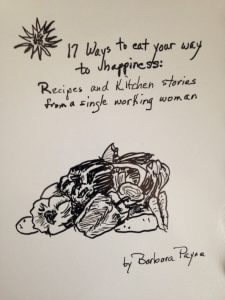 17 Ways to eat your way
to happiness:
Recipes and Kitchen stories
from a single working woman
by Barbara Payne